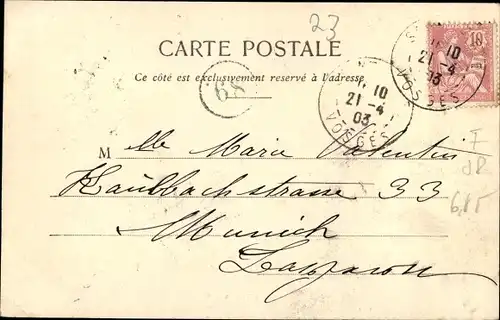 23
CARTE POSTALE
Ce côté est exclusivement reservé à l'adresse
10
21 -4
03
VOSGES
10
21 -4
03
VOSGES
Melle Marie Valentin
Kaulbachstrasse 33
Munich